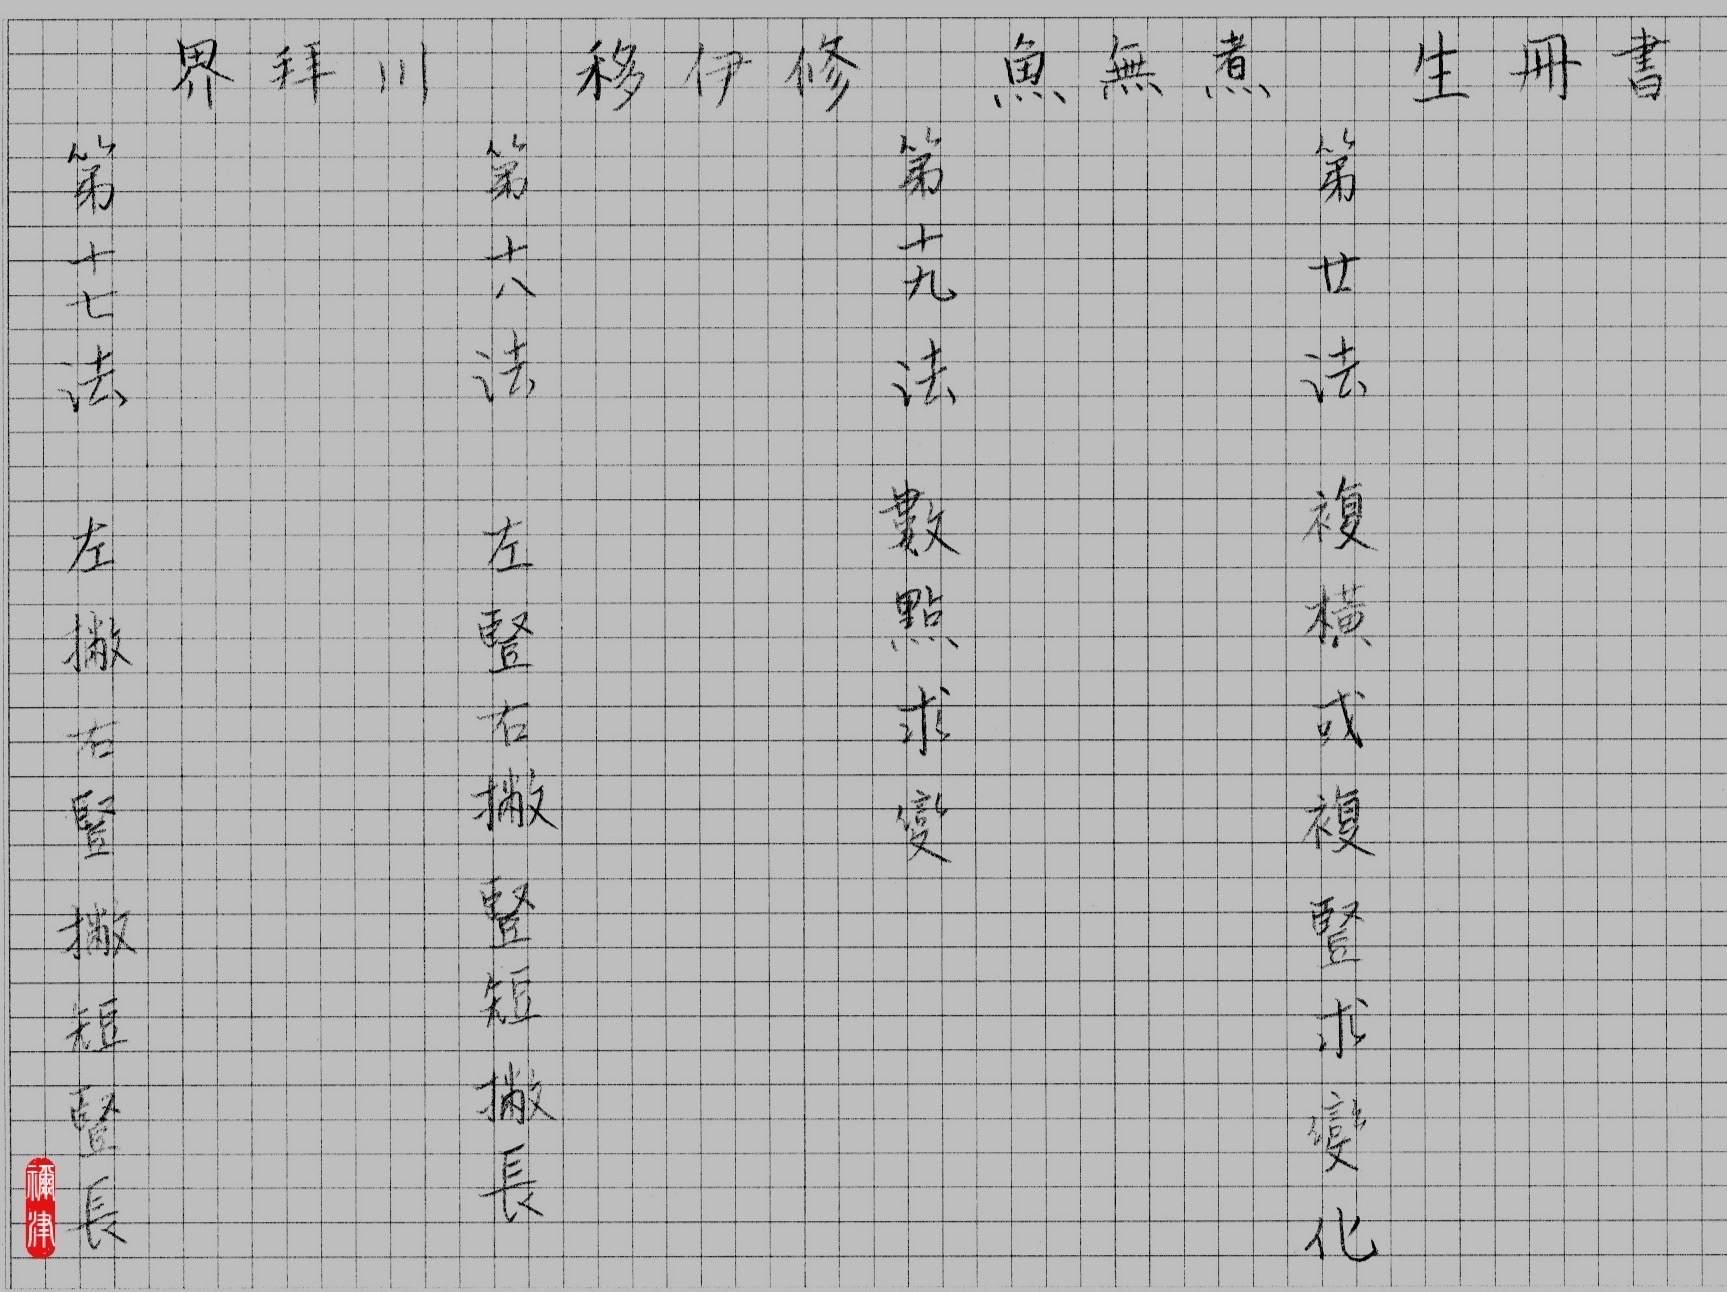 界拜川 移伊修 魚無煮 生冊書
第十七法 左撇右豎撇短豎長
第十八法 左豎右撇豎短撇長
第十九法 數點求變
第廿法 複橫或複豎求變化
禰津